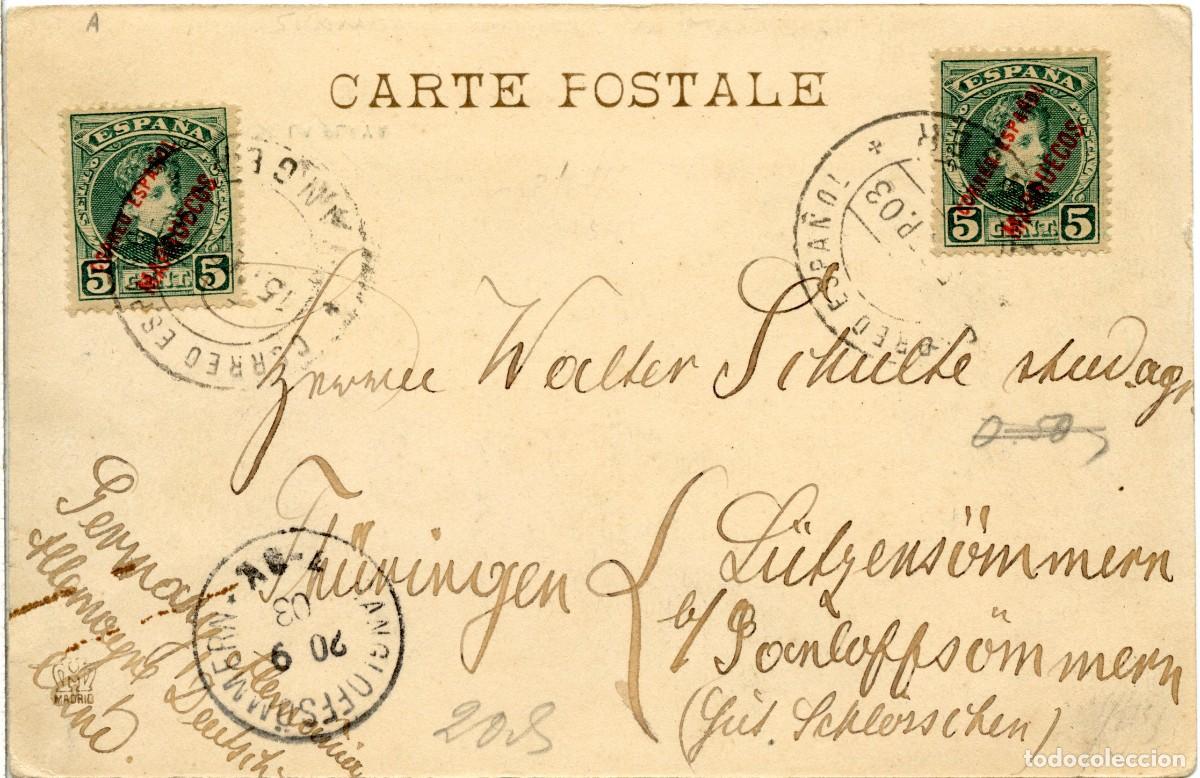 A
CARTE POSTALE
ESPAÑA
CORREO ESPAÑOL
MARRUECOS
5 CENT. 5
ESPAÑA
CORREO ESPAÑOL
MARRUECOS
5 CENT. 5
CORREO ESP
15
CORREO ESPAÑOL
P.03
Herrn Walter Schulte stud.agr
0.50
Thüringen
Lützensömmern
b/ Ganloffsömmern
(Gut. Schlörschen)
Germany
Allemagne
Deutsch
GANGLOFFSÖMMERN
20 9
03
7-8V
MADRID
todocoleccion